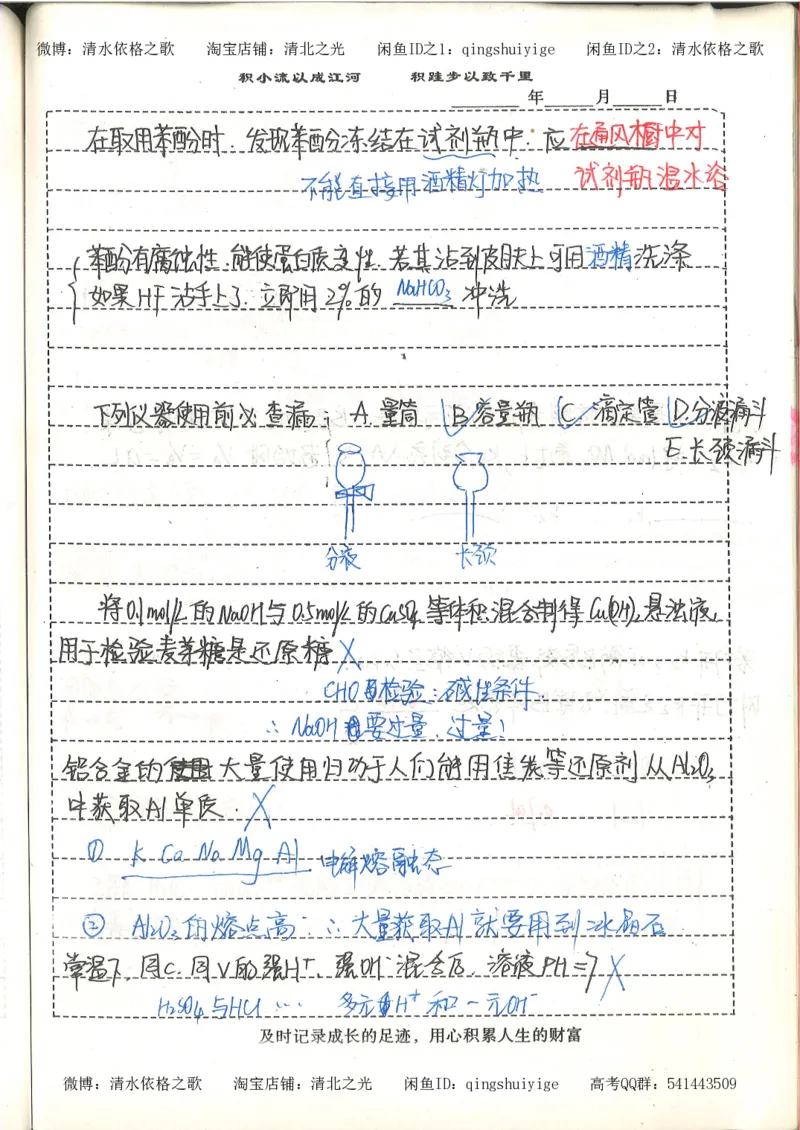 微博：清水依格之歌 淘宝店铺：清北之光 闲鱼ID之1：qingshuiyige 闲鱼ID之2：清水依格之歌
积小流以成江河 积跬步以致千里
年 月 日
在取用苯酚时，发现苯酚冻结在试剂瓶中，应在通风橱中对
不能直接用酒精灯加热 试剂瓶温水浴
苯酚有腐蚀性，能使蛋白质变性，若其沾到皮肤上可用酒精洗涤
如果HF沾手上了，立即用2%的 NaHCO₃ 冲洗
下列仪器使用前必查漏： A.量筒 B.容量瓶 C.滴定管 D.分液漏斗
E.长颈漏斗
分液 长颈
将0.1mol/L的NaOH与0.5mol/L的CuSO₄等体积混合制得Cu(OH)₂悬浊液，
用于检验麦芽糖是还原糖 X
CHO的检验：碱性条件
∴NaOH要过量，过量！
铝合金的大量使用归功于人们能用焦炭等还原剂从Al₂O₃
中获取Al单质. X
① K Ca Na Mg Al 电解熔融态
② Al₂O₃的熔点高 ∴大量获取Al就要用到冰晶石
常温下，同C.同V的强H⁺、强OH⁻混合后，溶液PH=7 X
H₂SO₄与HCl … 多元H⁺和一元OH⁻
及时记录成长的足迹，用心积累人生的财富
微博：清水依格之歌 淘宝店铺：清北之光 闲鱼ID：qingshuiyige 高考QQ群：541443509